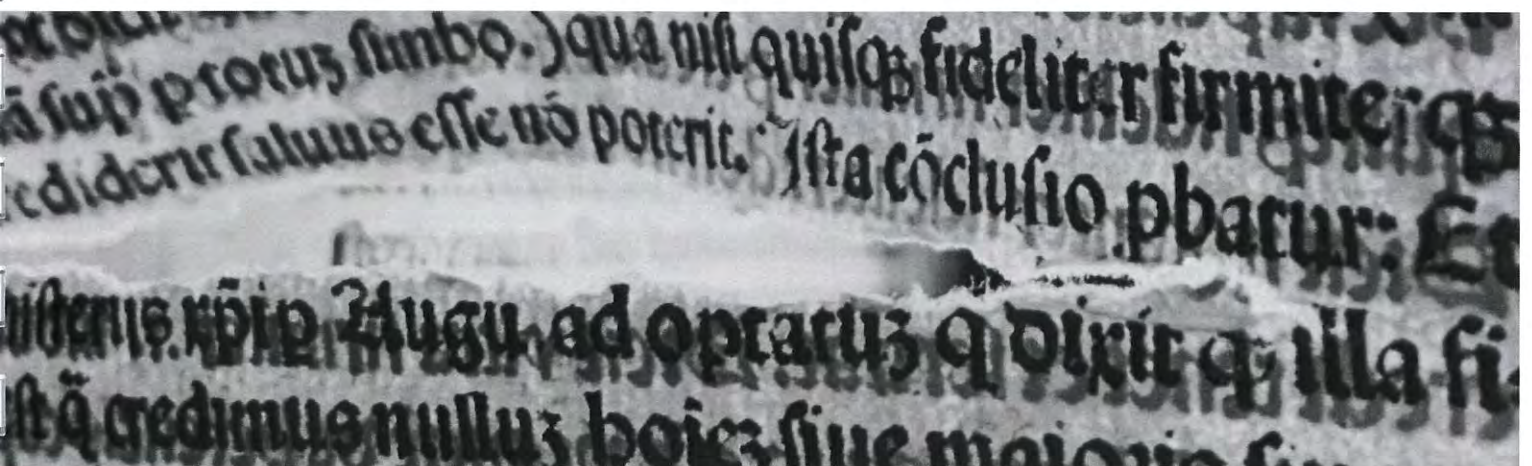 sup̄ ꝓ totuꝫ simbo.) qua nisi quisqꝫ fideliter firmiterqꝫ
crediderit saluus esse nō poterit. Ista cōclusio ꝓbatur: Et
xp̄ip Augu. ad optatuꝫ q dixit qꝫ illa fi
q̄ credimus nulluꝫ hoieꝫ siue maioris